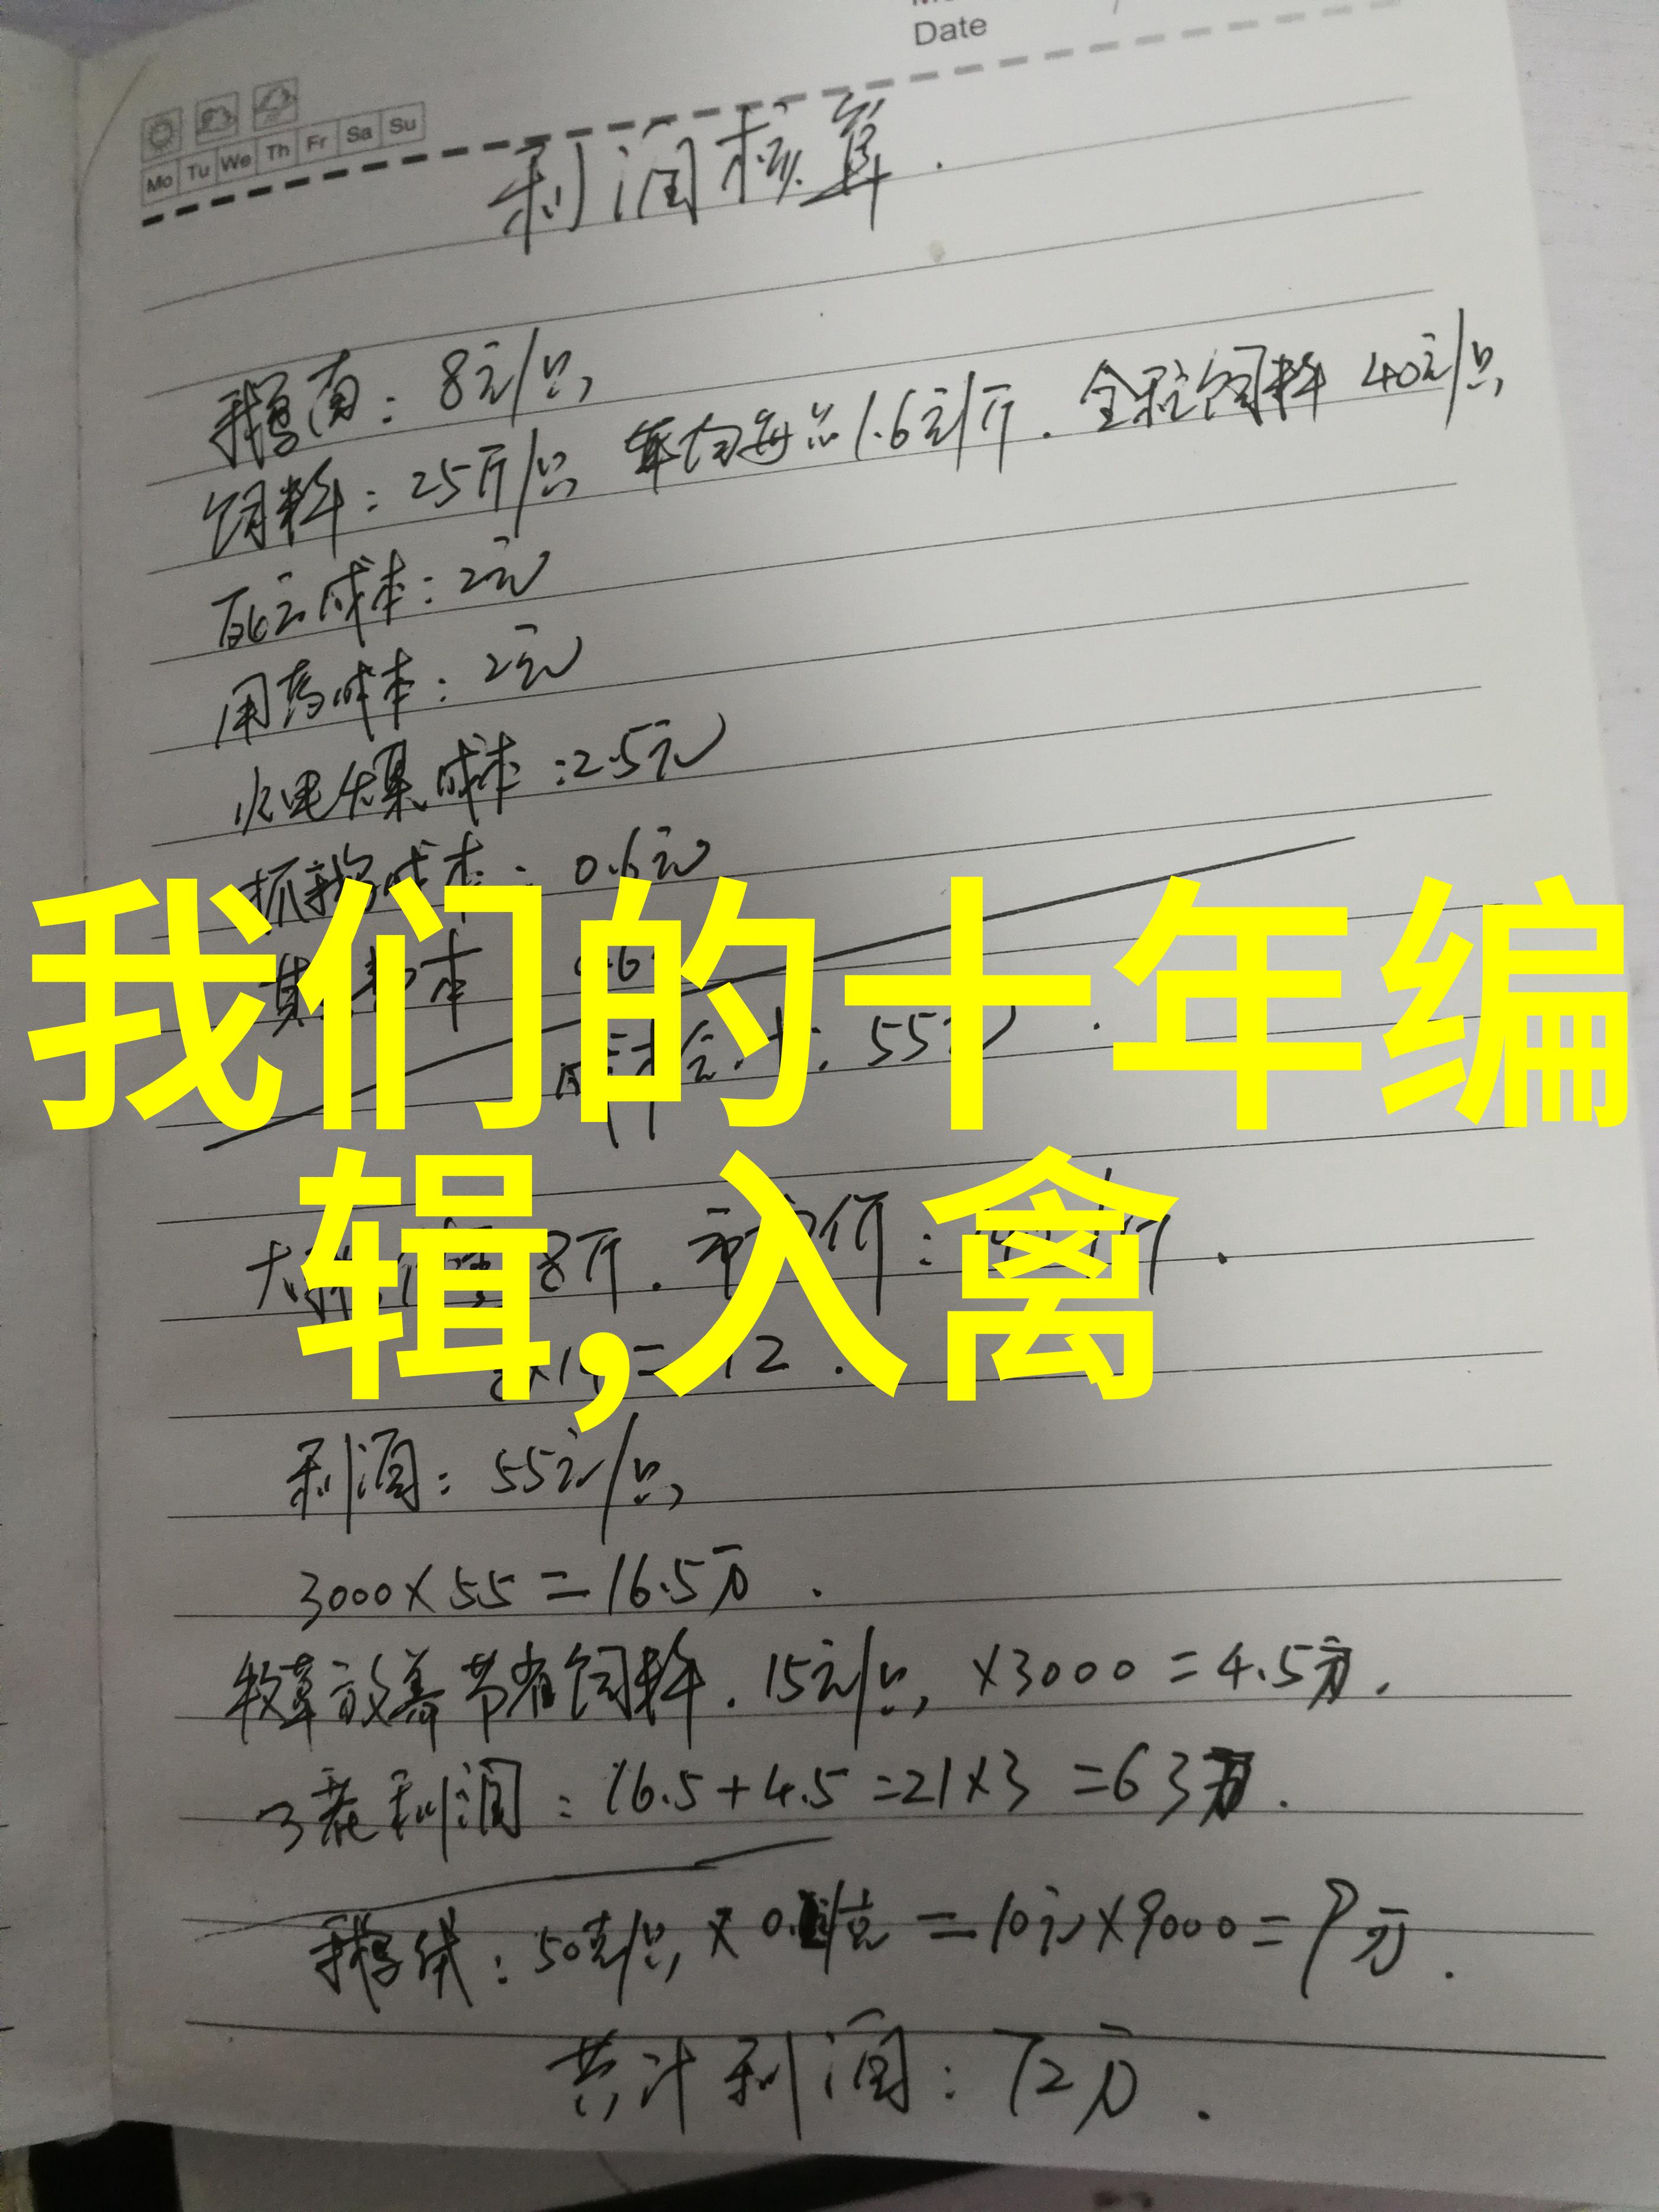 Date
Mo Tu We Th Fr Sa Su
利润核算.
鹅苗: 8元/只
饲料: 25斤/只 1.6元/斤. 全程饲料 40元/只
死亡成本: 2元
用药成本: 2元
水电 成本: 2.5元
抓鹅成本: 0.6元
我们的十年编
55元.
辑,入禽
8斤. 市场价:
利润: 55元/只
3000×55=16.5万.
牧草放养节省饲料. 15元/只 ×3000=4.5万.
3茬利润: 16.5+4.5=21×3=63万.
鹅绒: 50克/只 × =10元×9000=9万.
共计利润: 72万.